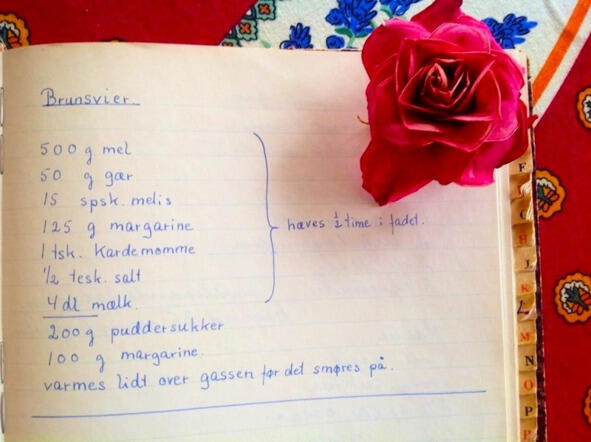 Brunsvier.
500 g mel
50 g gær
15 spsk. melis
125 g margarine
1 tsk. Kardemomme
1/2 tesk. salt
4 dl mælk.
hæves 1/2 time i fadet.
200 g puddersukker
100 g margarine.
varmes lidt over gassen før det smøres på.
F
H
K
L
M
N
O
P